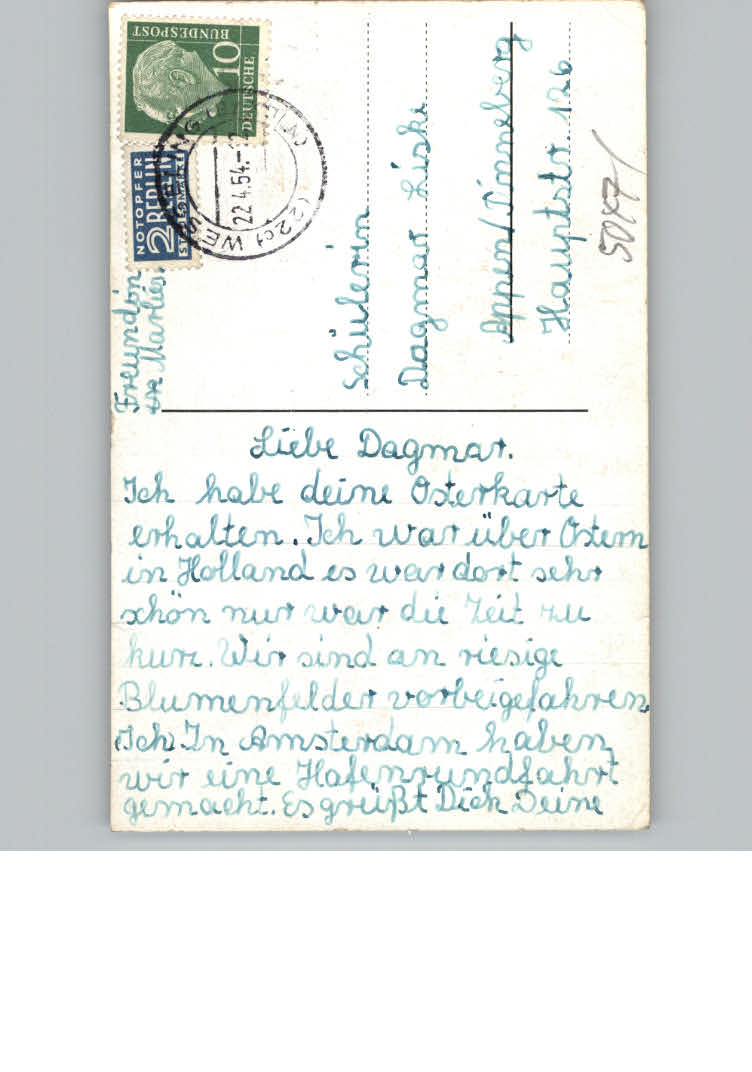 Liebe Dagmar.
Ich habe deine Osterkarte
erhalten. Ich war über Ostern
in Holland es war dort sehr
schön nur war die Zeit zu
kurz. Wir sind an riesige
Blumenfelder vorbeigefahren.
(Ich) In Amsterdam haben
wir eine Hafenrundfahrt
gemacht. Es grüßt Dich Deine
Freundin
Marlies.
Schülerin
Dagmar Liske
Appen/Pinneberg
Hauptstr 126
DEUTSCHE
BUNDESPOST
10
NOTOPFER
2 BERLIN
STEUERMARKE
(22c) WES
22.4.54.-